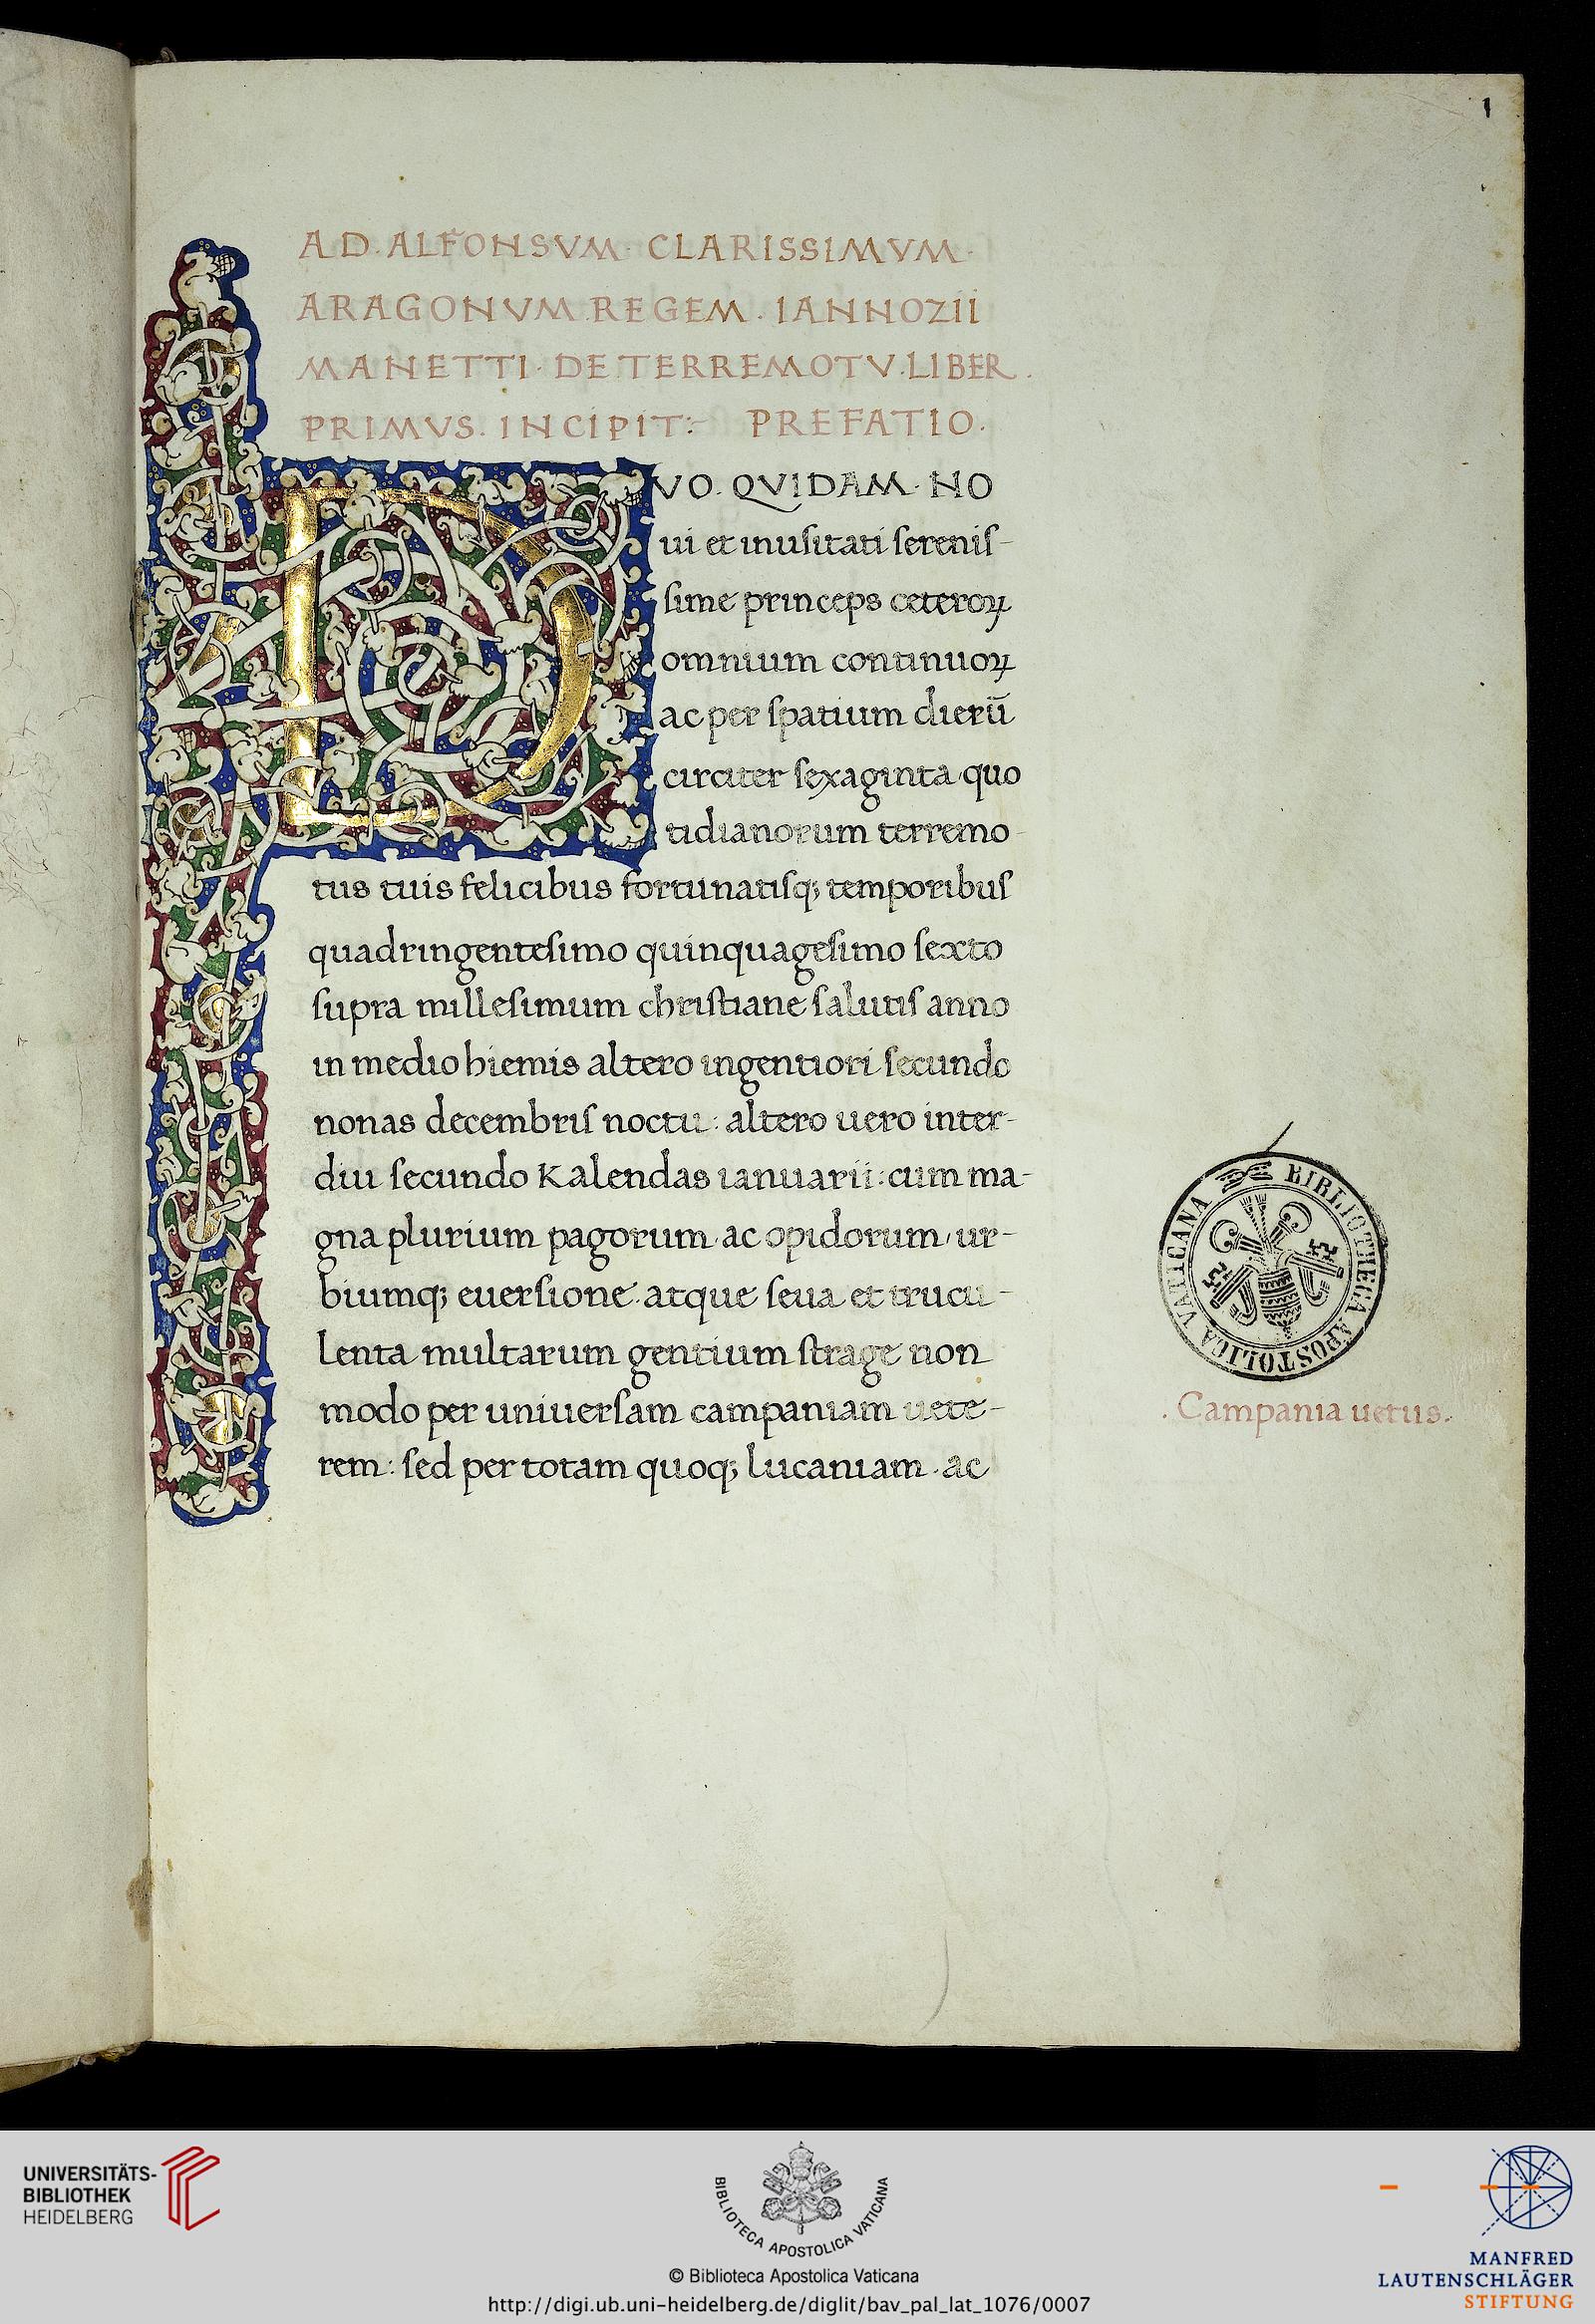 1
AD. ALFONSVM. CLARISSIMVM.
ARAGONVM. REGEM. IANNOZII
MANETTI. DE TERREMOTV. LIBER.
PRIMVS. INCIPIT: PREFATIO.
DVO. QVIDAM. NO
ui et inusitati serenis-
sime princeps ceteroꝝ
omnium continuoꝝ
ac per spatium dierū
circiter sexaginta quo
tidianorum terremo-
tus tuis felicibus fortunatisq; temporibus
quadringentesimo quinquagesimo sexto
supra millesimum christiane salutis anno
in medio hiemis altero ingentiori secundo
nonas decembris noctu: altero uero inter-
diu secundo Kalendas ianuarii: cum ma-
gna plurium pagorum. ac opidorum, ur-
biumq; euersione. atque seua et trucu-
lenta multarum gentium strage non
modo per uniuersam campaniam uete-
rem: sed per totam quoq; lucaniam. ac
BIBLIOTHECA APOSTOLICA VATICANA
. Campania uetus.
UNIVERSITÄTS-
BIBLIOTHEK
HEIDELBERG
BIBLIOTECA APOSTOLICA VATICANA
© Biblioteca Apostolica Vaticana
http://digi.ub.uni-heidelberg.de/diglit/bav_pal_lat_1076/0007
MANFRED
LAUTENSCHLÄGER
STIFTUNG